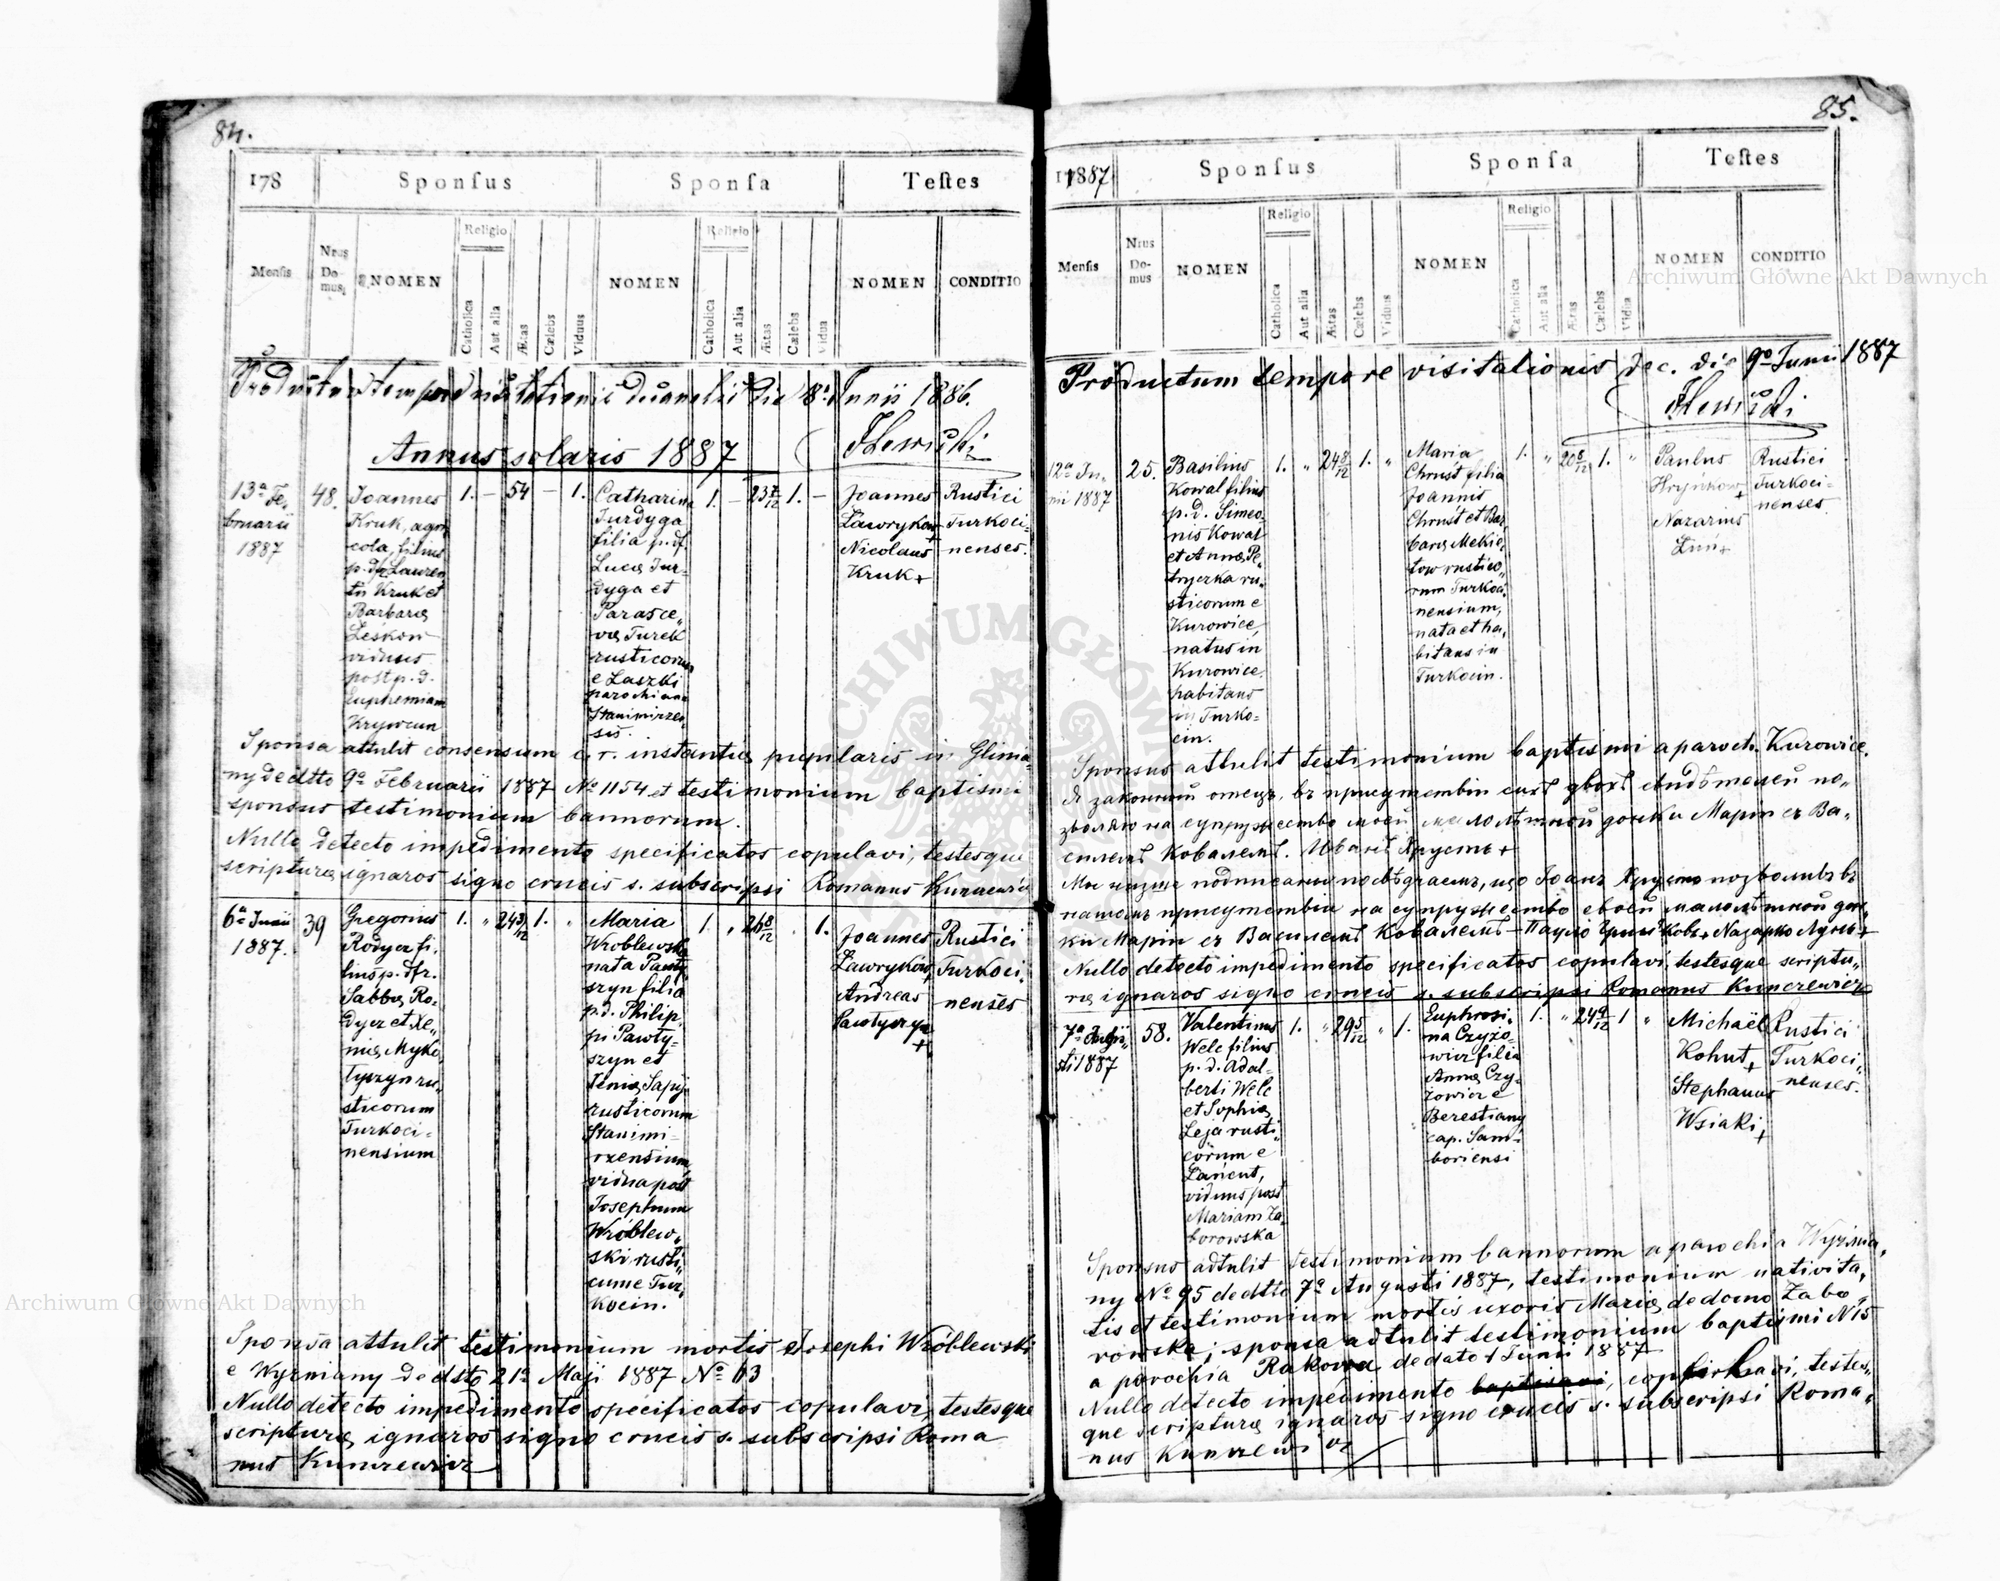 84.
178
Sponſus
Sponſa
Teſtes
Menſis
Nrus Domus
NOMEN
Religio
Catholica
Aut alia
Ætas
Cælebs
Viduus
NOMEN
Religio
Catholica
Aut alia
Ætas
Cælebs
Vidua
NOMEN
CONDITIO
Productum tempore visitationis decanalis die 8a Junii 1886.
Annus solaris 1887
13a Fe,,
bruarii
1887
48.
Joannes
Kruk, agri,,
cola, filius
p. d. Lauren
tii Kruk et
Barbaræ
Leśkow
viduus
post p. d.
Euphemiam
Krywcun
1. – 54 – 1.
Catharina
Jurdyga
filia p. d.
Lucæ Jur-
dyga et
Parasce,,
væ Turek
rusticorum
e Laszki
parochiana
Stanimirzen
sis.
1. – 23 7/12 1. –
Joannes
Ławrykow +
Nicolaus
Kruk +
Rustici
Turkoci-
nenses.
Sponsa attulit consensum c. r. instantiæ pupilaris in Glinia-
ny de dtto 9a Februarii 1887 No 1154 et testimonium baptismi
sponsus testimonium bannorum.
Nullo detecto impedimento specificatos copulavi, testesque
scripturæ ignaros signo crucis s. subscripsi Romanus Kunzewicz
6a Junii
1887.
39
Gregorius
Rodycz fi,,
lius p. dfr.
Sabbæ Ro-
dycz et Xe,,
niæ Myko
tyczyn ru,,
sticorum
Turkoci-
nensium
1. „ 24 3/12 1. „
Maria
Wróblewska
nata Pawty
szyn filia
p. d. Philip-
pi Pawty-
szyn et
Xeniæ Sapy
rusticorum
Stanimi-
rzensium,
vidua post
Josephum
Wróblew,,
ski rusti,,
cum e Tur,,
kocin.
1. „ 26 8/12 „ 1.
Joannes
Ławrykow +
Andreas
Pawtyszyn +
Rustici
Turkoci,,
nenses
Sponsa attulit testimonium mortis Josephi Wróblewski
e Wyżniany de dtto 21a Maji 1887 No 63
Nullo detecto impedimento specificatos copulavi, testesque
scripturæ ignaros signo crucis s. subscripsi Roma
nus Kunzewicz
85.
1887
Sponſus
Sponſa
Teſtes
Menſis
Nrus Domus
NOMEN
Religio
Catholica
Aut alia
Ætas
Cælebs
Viduus
NOMEN
Religio
Catholica
Aut alia
Ætas
Cælebs
Vidua
NOMEN
CONDITIO
Productum tempore visitationis dec. die 9a Junii 1887
12a Ju,,
nii 1887
25.
Basilius
Kowal filius
p. d. Simeo-
nis Kowal
et Annæ Pe-
tryczka ru,,
sticorum e
Kurowice,
natus in
Kurowice,
habitans
in Turko-
cin.
1. „ 24 8/12 1. „
Maria
Chrust filia
Joannis
Chrust et Bar
baræ Mekie,,
tow rustico,,
rum Turkoci
nensium,
nata et ha,,
bitans in
Turkocin.
1. „ 20 8/12 1. „
Paulus
Hrynkow +
Nazarius
Łuń +
Rustici
Turkoci-
nenses.
Sponsus attulit testimonium baptismi a paroch. Kurowice.
Я законный отецъ, въ присутствіи сихъ двохъ свидѣтелей по-
зволяю на супружество моєй малолѣтной дочки Маріи съ Ва-
силемъ Ковалемъ. Иванъ Хрустъ +
Мы низше подписаны посвѣдчаемъ, що Іоанъ Хрустъ позволивъ въ
нашемъ присутствіи на супружество своєй малолѣтной доч-
ки Маріи съ Василемъ Ковалемъ – Павло Гриньковъ + Назарко Лунь +
Nullo detecto impedimento specificatos copulavi, testesque scriptu,,
ræ ignaros signo crucis s. subscripsi Romanus Kunzewicz
7a Augu,,
sti 1887
58.
Valentinus
Welc filius
p. d. Adal-
berti Welc
et Sophiæ
Leja rusti,,
corum e
Łańcut,
viduus post
Mariam Za-
borowska
1. „ 29 5/12 „ 1.
Euphrosi-
na Czyżo-
wicz filia
Annæ Czy-
żowicz e
Berestiany
cap. Sam-
boriensi
1. „ 24 9/12 1 „
Michaël
Kohut +
Stephanus
Wsiaki +
Rustici
Turkoci,,
nenses.
Sponsus adtulit testimonium bannorum a parochia Wyżnia,,
ny No 95 de dtto 7a Augusti 1887, testimonium nativita,,
tis et testimonium mortis uxoris Mariæ de domo Zabo
rowska; sponsa adtulit testimonium baptismi N 15
a parochia Rakowa de dato 1 Junii 1887
Nullo detecto impedimento copulavi, testes,,
que scripturæ ignaros signo crucis s. subscripsi Roma,,
nus Kunzewicz
Archiwum Główne Akt Dawnych
Archiwum Główne Akt Dawnych